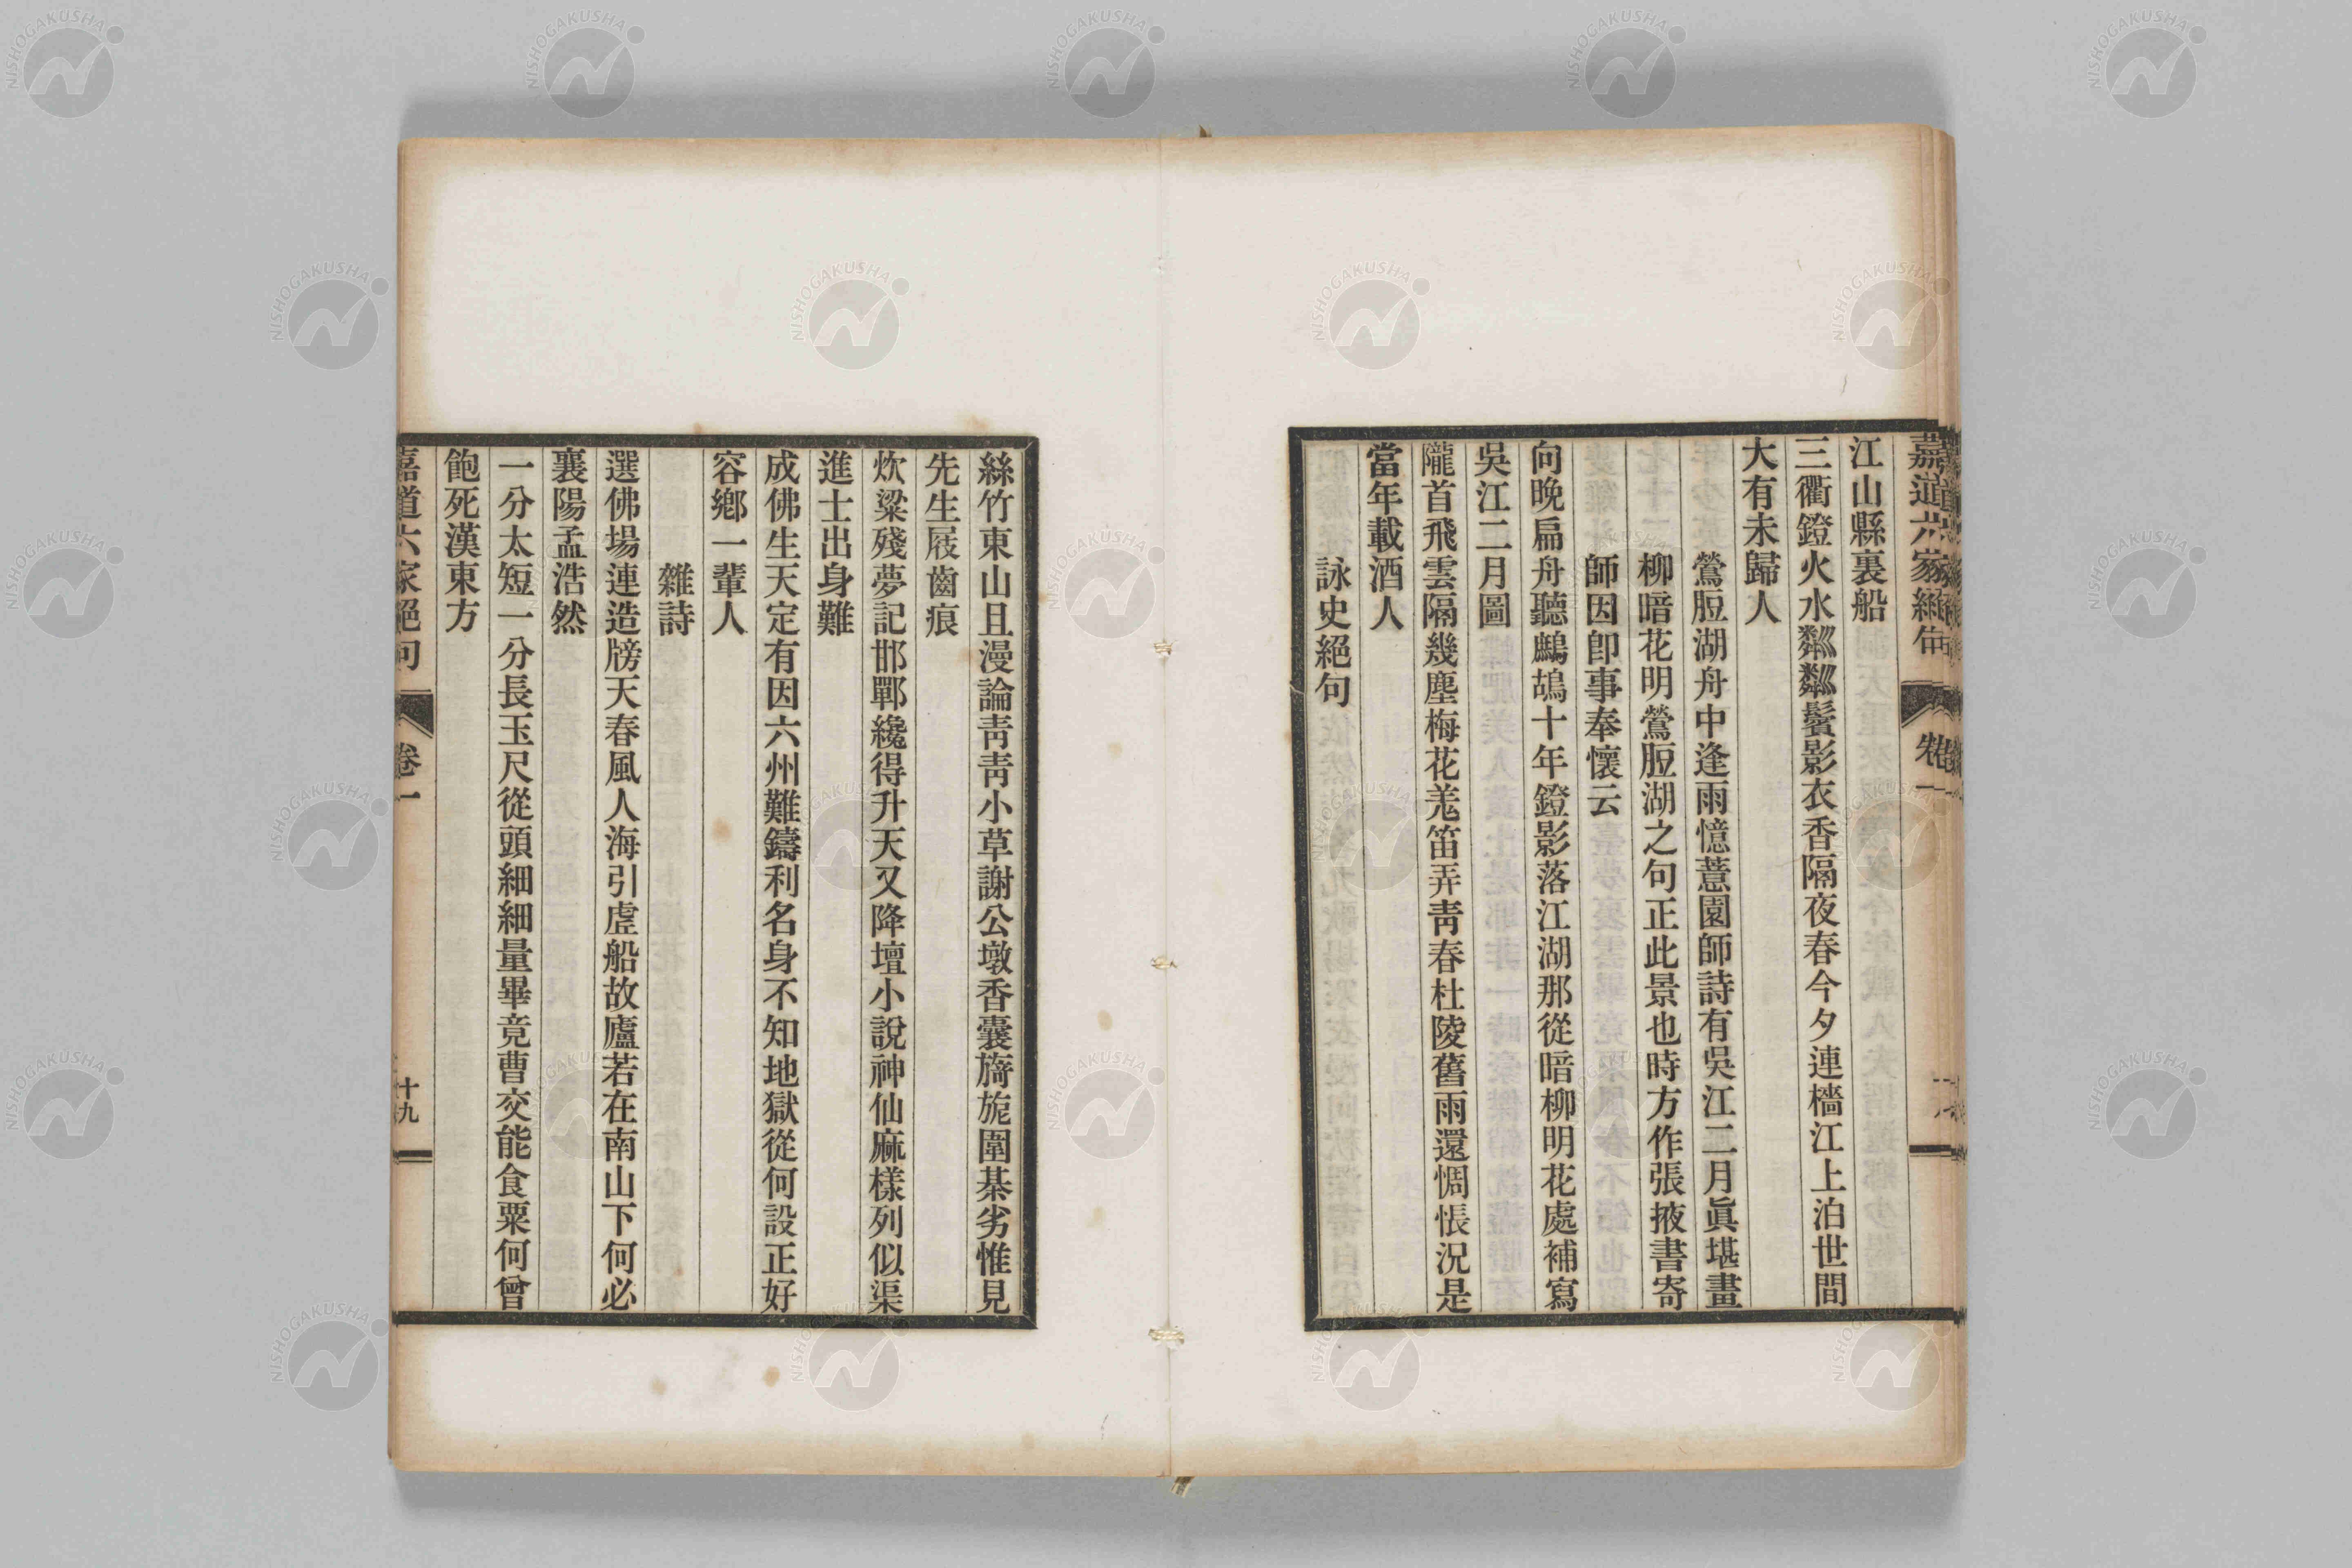 嘉道六家絕句
卷一
江山縣裏船
三衢鐙火水粼粼鬢影衣香隔夜春今夕連檣江上泊世間
大有未歸人
鶯脰湖舟中逢雨憶薏園師詩有吳江二月眞堪畫
柳暗花明鶯脰湖之句正此景也時方作張掖書寄
師因卽事奉懷云
向晚扁舟聽鷓鴣十年鐙影落江湖那從暗柳明花處補寫
吳江二月圖
隴首飛雲隔幾塵梅花羌笛弄靑春杜陵舊雨還惆悵況是
當年載酒人
詠史絕句
絲竹東山且漫論靑靑小草謝公墩香囊旖旎圍棊劣惟見
先生屐齒痕
炊粱殘夢記邯鄲纔得升天又降壇小說神仙麻樣列似渠
進士出身難
成佛生天定有因六州難鑄利名身不知地獄從何設正好
容鄉一輩人
雜詩
選佛場連造牓天春風人海引虛船故廬若在南山下何必
襄陽孟浩然
一分太短一分長玉尺從頭細細量畢竟曹交能食粟何曾
飽死漢東方
嘉道六家絕句
卷一
十九
NISHOGAKUSHA